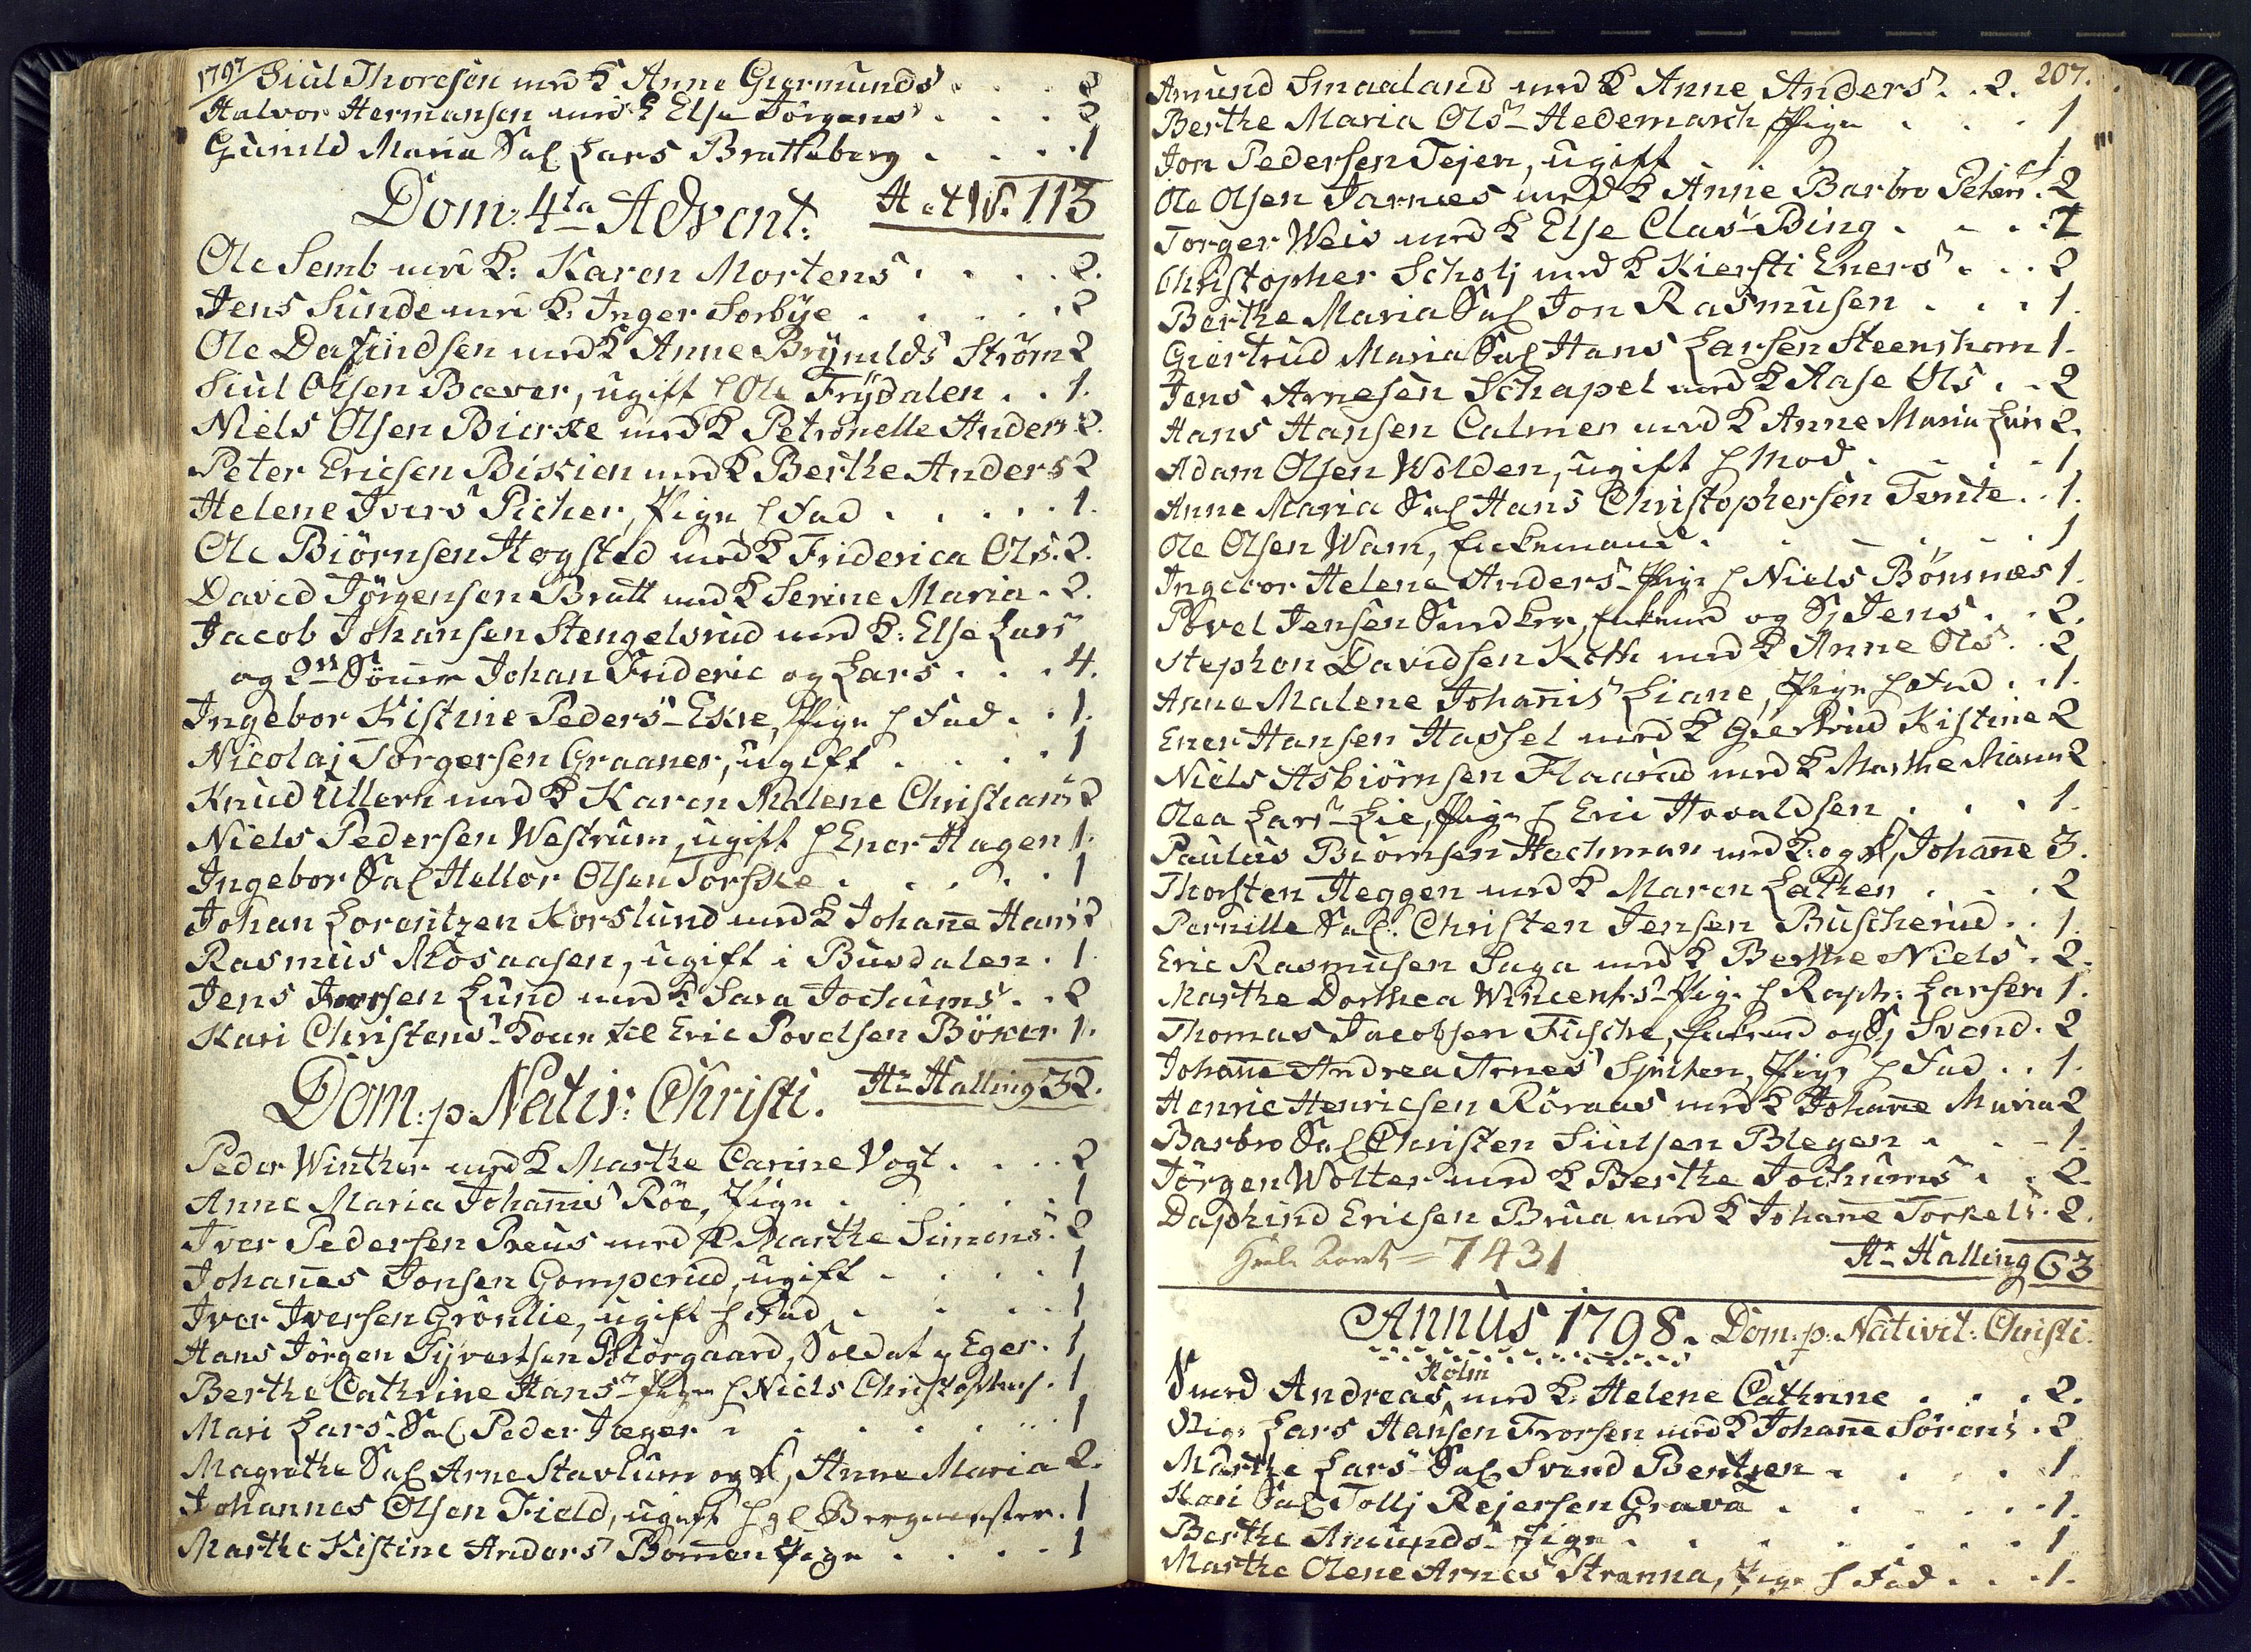 1797
Siul Thoresen med K Anne Giermunds . . . 2
Halvor Hermansen med K Else Jörgens . . . 2
Gunild Maria Sal Lars Bratteberg . . . 1
Dom: 4ta Advent: 113
Ole Semb med K: Karen Mortens . . . 2.
Jens Sunde med K: Inger Sorbye . . . 2
Ole Dafindsen med K Anne Brynilds Ström 2
Siul Olsen Bæver, ugift h Ole Frydalen . . 1.
Niels Olsen Bierke med K Petronelle Anders 2.
Peter Ericsen Biskien med K Berthe Anders 2
Helene Ivers Picher, Pige h Fad . . . 1.
Ole Biörnsen Hogsted med K Friderica Ols. 2.
David Jörgensen Bratt med K Serine Maria . 2.
Jacob Johansen Stengelsrud med K: Else Lars
og 2de Sönner Johan Frideric og Lars . . . 4.
Ingebor Kistine Peders Ekre, Pige h Fad . . 1.
Nicolaj Torgersen Graaner, ugift . . . 1
Knud Ullern med K Karen Malene Christians 2
Niels Pedersen Westrum, ugift h Ener Hagen 1.
Ingebor Sal Hellor Olsen Torske . . . 1
Johan Lorentzen Korslund med K Johanne Hans 2
Rasmus Mosaasen, ugift i Busdalen . 1
Jens Iversen Lund med K Sara Jochums . . 2
Kari Christens Kone til Eric Povelsen Böker 1.
Dom: p. Nativ: Christi. Hr Halling 32.
Peder Winther med K Marthe Carine Vogt . . . 2
Anne Maria Johannis Röe, Pige . . . 1
Iver Pedersen Preus med K Marthe Simons . 2
Johannes Jonsen Gomperud, ugift . . . 1
Iver Iversen Grönlie, ugift h Fad . . . 1
Hans Jörgen Syvertsen Biörgaard, Soldat Eger . 1
Berthe Cathrine Hans Pige h Niels Christophers . 1
Mari Lars Sal Peder Jæger . . . 1
Magrethe Sal Arne Stavlum og D, Anne Maria 2.
Johannes Olsen Field, ugift h gl Bergmester . 1
Marthe Kistine Anders Bomen Pige . . . 1
207.
Amund Smaaland med K Anne Anders . . 2.
Berthe Maria Ols Hedemarch Pige . . . 1
Jon Pedersen Tejen, ugift . . 1
Ole Olsen Jarnæs med K Anne Barbro Peters . 2
Torger Weis med K Else Clas Bing . . . 2
Christopher Scholj med K Kiersti Eners . . . 2
Berthe Maria Sal Jon Rasmusen . . . 1.
Giertrud Maria Sal Hans Larsen Steenshorn 1.
Jens Arnesen Schapel med K Aase Ols . . 2
Hans Hansen Calmer med K Anne Maria Lars 2.
Adam Olsen Wolden, ugift h Mod . . . 1
Anne Maria Sal Hans Christophersen Temte . . 1.
Ole Olsen Wam, Enkemand . . . 1
Ingebor Helene Anders Pige h Niels Bömnæs 1.
Povel Jensen Enkemd og S, Jens . . 2.
Stephen Davidsen Koth med K Anne Ols . . 2
Anne Malene Johannis Liane, Pige h Fad . . 1.
Ener Hansen Hassel med K Giertrud Kistine 2
Niels Asbiörnsen Flaarud med K Marthe Maria 2
Olea Lars Lie, Pige h Eric Hovaldsen . . . 1.
Paulus Biörnsen Hachman med K: og D, Johanne 3.
Thorsten Heggen med K Maren Lathen . . . 2
Pernille Sal: Christen Jensen Buscherud . . 1.
Eric Rasmusen Saga med K Berthe Niels . 2.
Marthe Dorthea Wincents Pige h Raph: Larsen 1.
Thomas Jacobsen Fische, Enkemd og S, Svend . 2
Johanne Andrea Arnes Spiten, Pige h Fad . . 1.
Henric Henricsen Röraas med K Johanne Maria 2
Barbro Sal Christen Siulsen Blegen . . . 1.
Jörgen Wolter med K Berthe Jochums . . 2.
Daphind Ericsen Brua med K Johanne Torkels . 2.
Hele Aaret = 7431 Hr Halling 63
Annus 1798. Dom: p: Nativit: Christi.
Holm
Smed Andreas, med K: Helene Cathrine . . . 2.
Stig. Lars Hansen Frorsen med K Johanne Sörens . 2
Marthe Lars Sal Svend Bentzen . . . 1
Kari Sal Tollj Rejersen Grava . . . 1.
Berthe Amunds Pige . . . 1
Marthe Olene Arnes Stranna, Pige h Fad . . . 1.